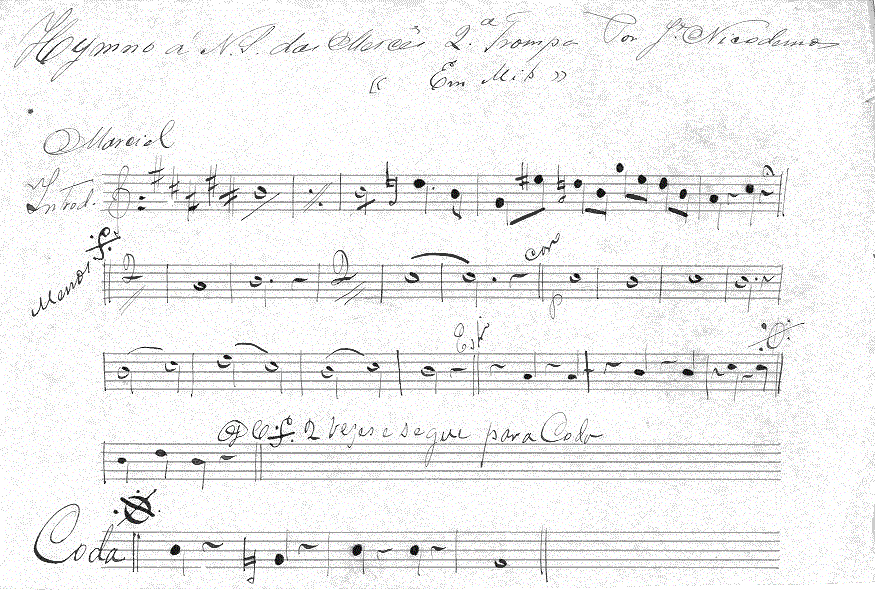 Hymno á N. S. das Mercês 2.ª Trompa Por J.e Nicodemos
« Em Mib »
Marcial
Introd.
Menos
2 2 Coro
p
Est.
D C 2 vezes e segue para Coda
Coda